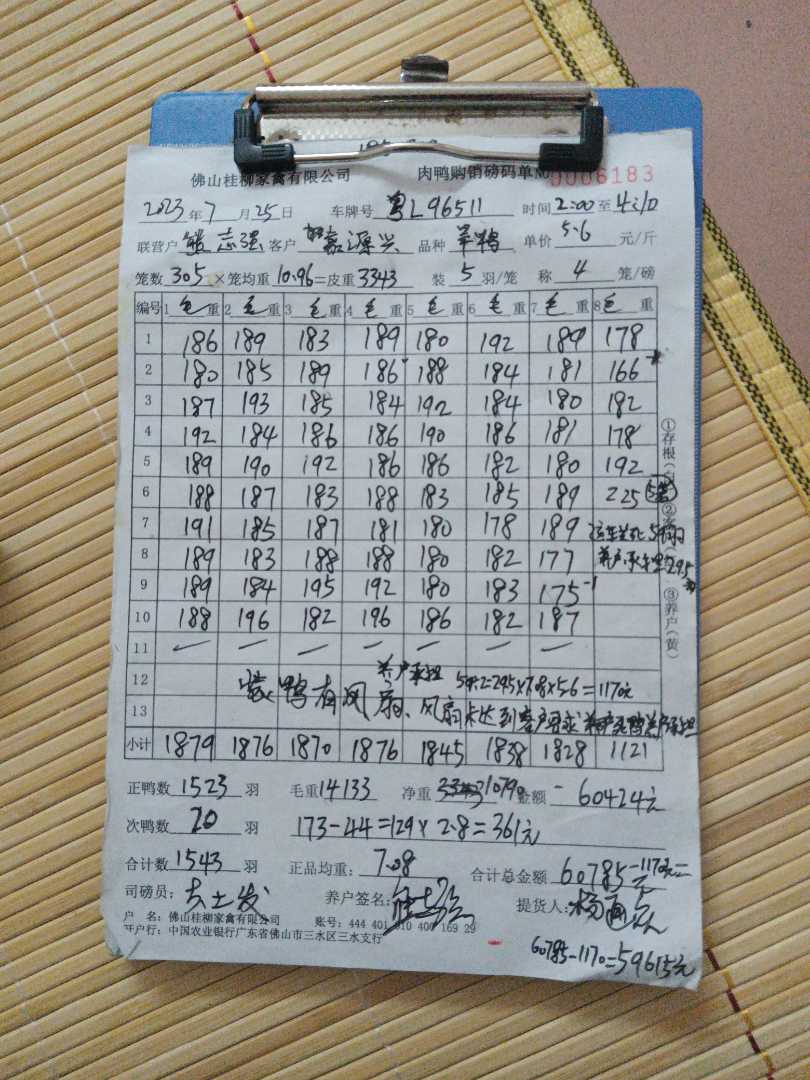 佛山桂柳家禽有限公司 肉鸭购销磅码单№ 0006183
2023年7月25日 车牌号 粤L96511 时间2:00至4:10
联营户 熊志强 客户 嘉源兴 品种 单价 5.6 元/斤
笼数 305 ×笼均重 10.96=皮重 3343 装 5 羽/笼 称 4 笼/磅
编号 1 毛重 2 毛重 3 毛重 4 毛重 5 毛重 6 毛重 7 毛重 8 毛重
1 186 189 183 189 180 192 189 178
2 180 185 189 186 188 184 181 166
3 187 193 185 184 192 184 180 182
4 192 184 186 186 190 186 181 178
5 189 190 192 186 186 182 180 192
6 188 187 183 188 183 185 189 225
7 191 185 187 181 180 178 189
8 189 183 188 188 180 182 177
9 189 184 195 192 180 183 175-1
10 188 196 182 196 186 182 187
11 — — — — — — —
12 养户承担 59÷2=29.5×7.08×5.6=1170元
装鸭有风扇、风扇未达到客户要求
13
小计 1879 1876 1870 1876 1845 1838 1828 1121
正鸭数 1523 羽 毛重14133 净重 10790 金额 60424元
次鸭数 20 羽 173-44=129×2.8=361元
合计数 1543 羽 正品均重: 7.08 合计总金额 60785元-1170元=
司磅员: 养户签名: 提货人:
户 名: 佛山桂柳家禽有限公司 账号: 444 401 010 400 169 29
开户行: 中国农业银行广东省佛山市三水区三水支行
60785-1170=59615元
①存根( ②客 ③养户(黄)